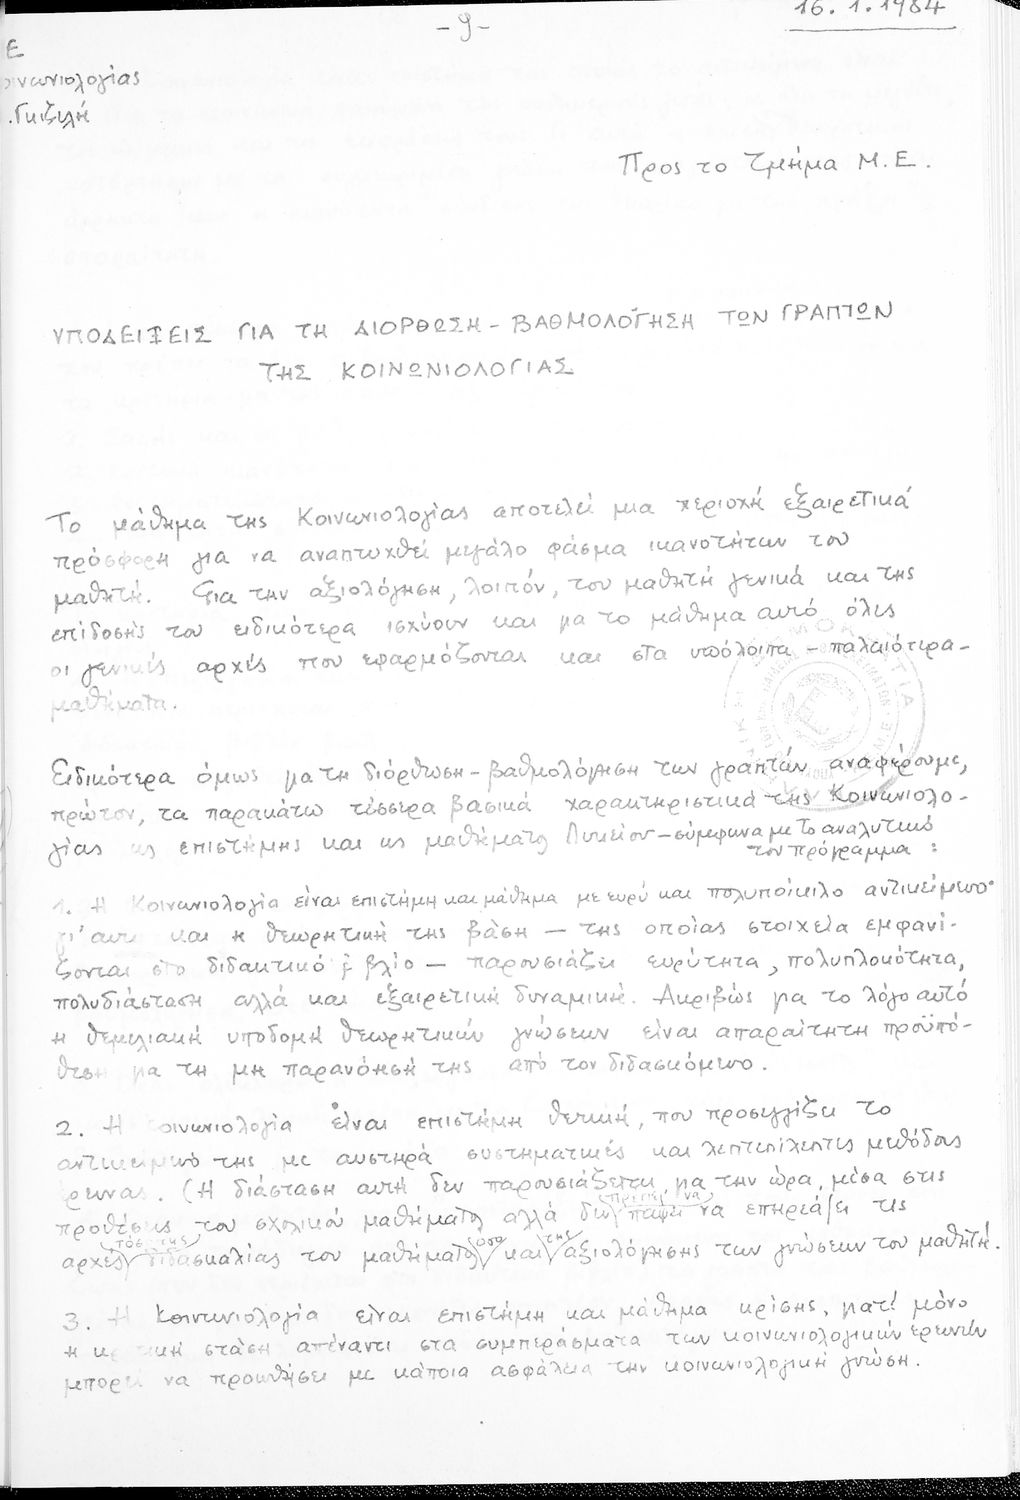 16.1.1984
-9-
Ε
οινωνιολογίας
.Γκιζελή
Προς το Τμήμα Μ.Ε.
ΥΠΟΔΕΙΞΕΙΣ ΓΙΑ ΤΗ ΔΙΟΡΘΩΣΗ-ΒΑΘΜΟΛΟΓΗΣΗ ΤΩΝ ΓΡΑΠΤΩΝ
ΤΗΣ ΚΟΙΝΩΝΙΟΛΟΓΙΑΣ
Το μάθημα της Κοινωνιολογίας αποτελεί μια περιοχή εξαιρετικά
πρόσφορη για να αναπτυχθεί μεγάλο φάσμα ικανοτήτων του
μαθητή. Για την αξιολόγηση, λοιπόν, του μαθητή γενικά και της
επίδοσής του ειδικότερα ισχύουν και για το μάθημα αυτό όλες
οι γενικές αρχές που εφαρμόζονται και στα υπόλοιπα - παλαιότερα-
μαθήματα.
Ειδικότερα όμως για τη διόρθωση-βαθμολόγηση των γραπτών αναφέρουμε,
πρώτον, τα παρακάτω τέσσερα βασικά χαρακτηριστικά της Κοινωνιολο-
γίας ως επιστήμης και ως μαθήματος Λυκείου-σύμφωνα με το αναλυτικό
του πρόγραμμα:
1. Η Κοινωνιολογία είναι επιστήμη και μάθημα με ευρύ και πολυποίκιλο αντικείμενο·
γι' αυτό και η θεωρητική της βάση — της οποίας στοιχεία εμφανί-
ζονται στο διδακτικό βιβλίο — παρουσιάζει ευρύτητα, πολυπλοκότητα,
πολυδιάσταση αλλά και εξαιρετική δυναμική. Ακριβώς για το λόγο αυτό
η θεμελιακή υποδομή θεωρητικών γνώσεων είναι απαραίτητη προϋπό-
θεση για τη μη παρανόησή της από τον διδασκόμενο.
2. Η Κοινωνιολογία είναι επιστήμη θετική, που προσεγγίζει το
αντικείμενό της με αυστηρά συστηματικές και λεπτεπίλεπτες μεθόδους
έρευνας. (Η διάσταση αυτή δεν παρουσιάζεται, για την ώρα, μέσα στις
προθέσεις του σχολικού μαθήματος αλλά δεν παύει να επηρεάζει τις
πρέπει να
αρχές τόσο της διδασκαλίας του μαθήματος όσο και της αξιολόγησης των γνώσεων του μαθητή.
3. Η Κοινωνιολογία είναι επιστήμη και μάθημα κρίσης, γιατί μόνο
η κριτική στάση απέναντι στα συμπεράσματα των κοινωνιολογικών ερευνών
μπορεί να προωθήσει με κάποια ασφάλεια την κοινωνιολογική γνώση.